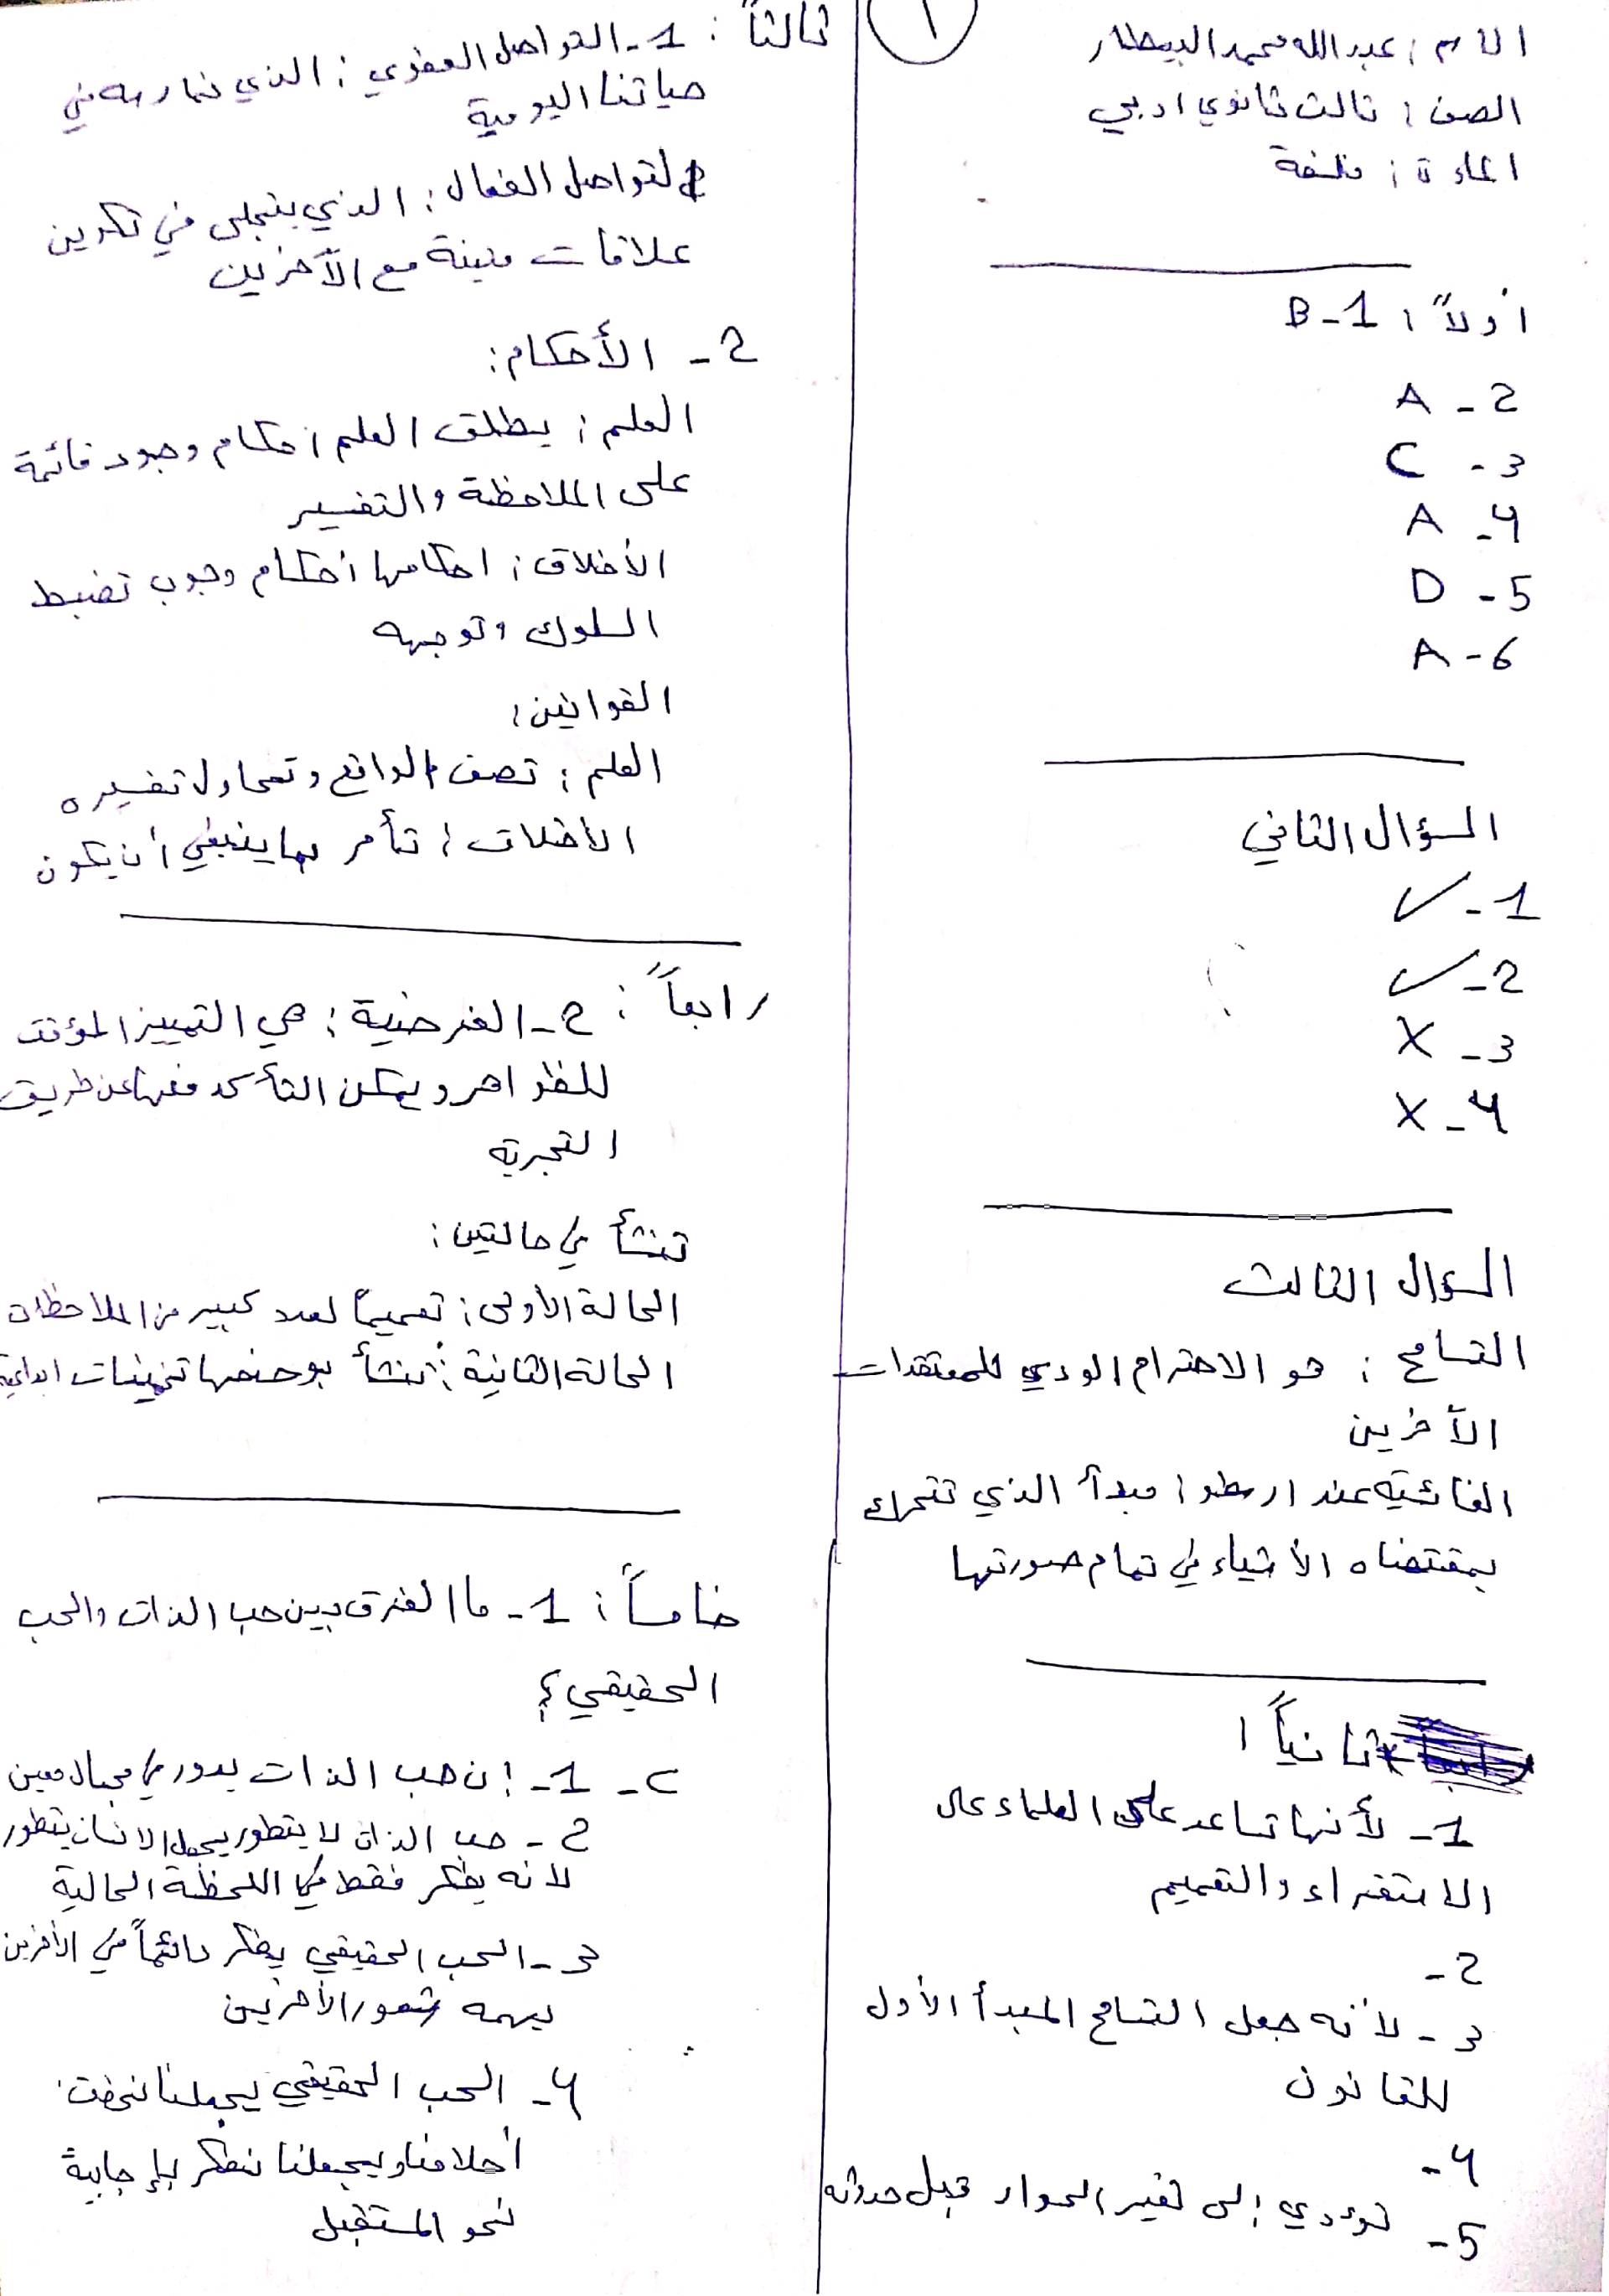 ١
الاسم : عبدالله محمد البيطار
الصف : ثالث ثانوي ادبي
المادة : فلسفة
أولاً : 1 - B
2 - A
3 - C
4 - A
5 - D
6 - A
السؤال الثاني
1 - ✓
2 - ✓
3 - X
4 - X
السؤال الثالث
التسامح : هو الاحترام الودي للمعتقدات
الآخرين
الغائية عند ارسطو : مبدأ الذي تتحرك
بمقتضاه الأشياء في تمام صورتها
ثانياً :
1 - لأنها تساعد على العلماء على
الاستقراء والتعميم
2 -
3 - لأنه جعل التسامح المبدأ الأول
للقانون
4 -
5 - تؤدي إلى تغير الحوار قبل حدوثه
ثالثاً : 1 - التواصل العفوي : الذي نمارسه في
حياتنا اليومية
التواصل الفعال : الذي يتجلى في تكوين
علاقات متينة مع الآخرين
2 - الأحكام :
العلم : يطلق العلم أحكام وجود قائمة
على الملاحظة والتفسير
الأخلاق : احكامها أحكام وجوب تضبط
السلوك وتوجهه
القوانين :
العلم : تصف الواقع وتحاول تفسيره
الأخلاق : تأمر بما ينبغي أن يكون
رابعاً : 2 - الفرضية : هي التمييز المؤقت
للظواهر ويمكن التأكد منها عن طريق
التجربة
تنشأ في حالتين :
الحالة الأولى : تعميماً لعدد كبير من الملاحظات
الحالة الثانية : تنشأ بوصفها تخمينات ابداعية
خامساً : 1 - ما الفرق بين حب الذات والحب
الحقيقي ؟
ج - 1 - إن حب الذات يدور في مجال معين
2 - حب الذات لا يتطور يجعل الانسان يتطور
لانه يفكر فقط في اللحظة الحالية
3 - الحب الحقيقي يفكر دائماً في الأخرين
يهمه شعور الأخرين
4 - الحب الحقيقي يجعلنا نحقق
أحلامنا ويجعلنا نفكر بإجابية
نحو المستقبل